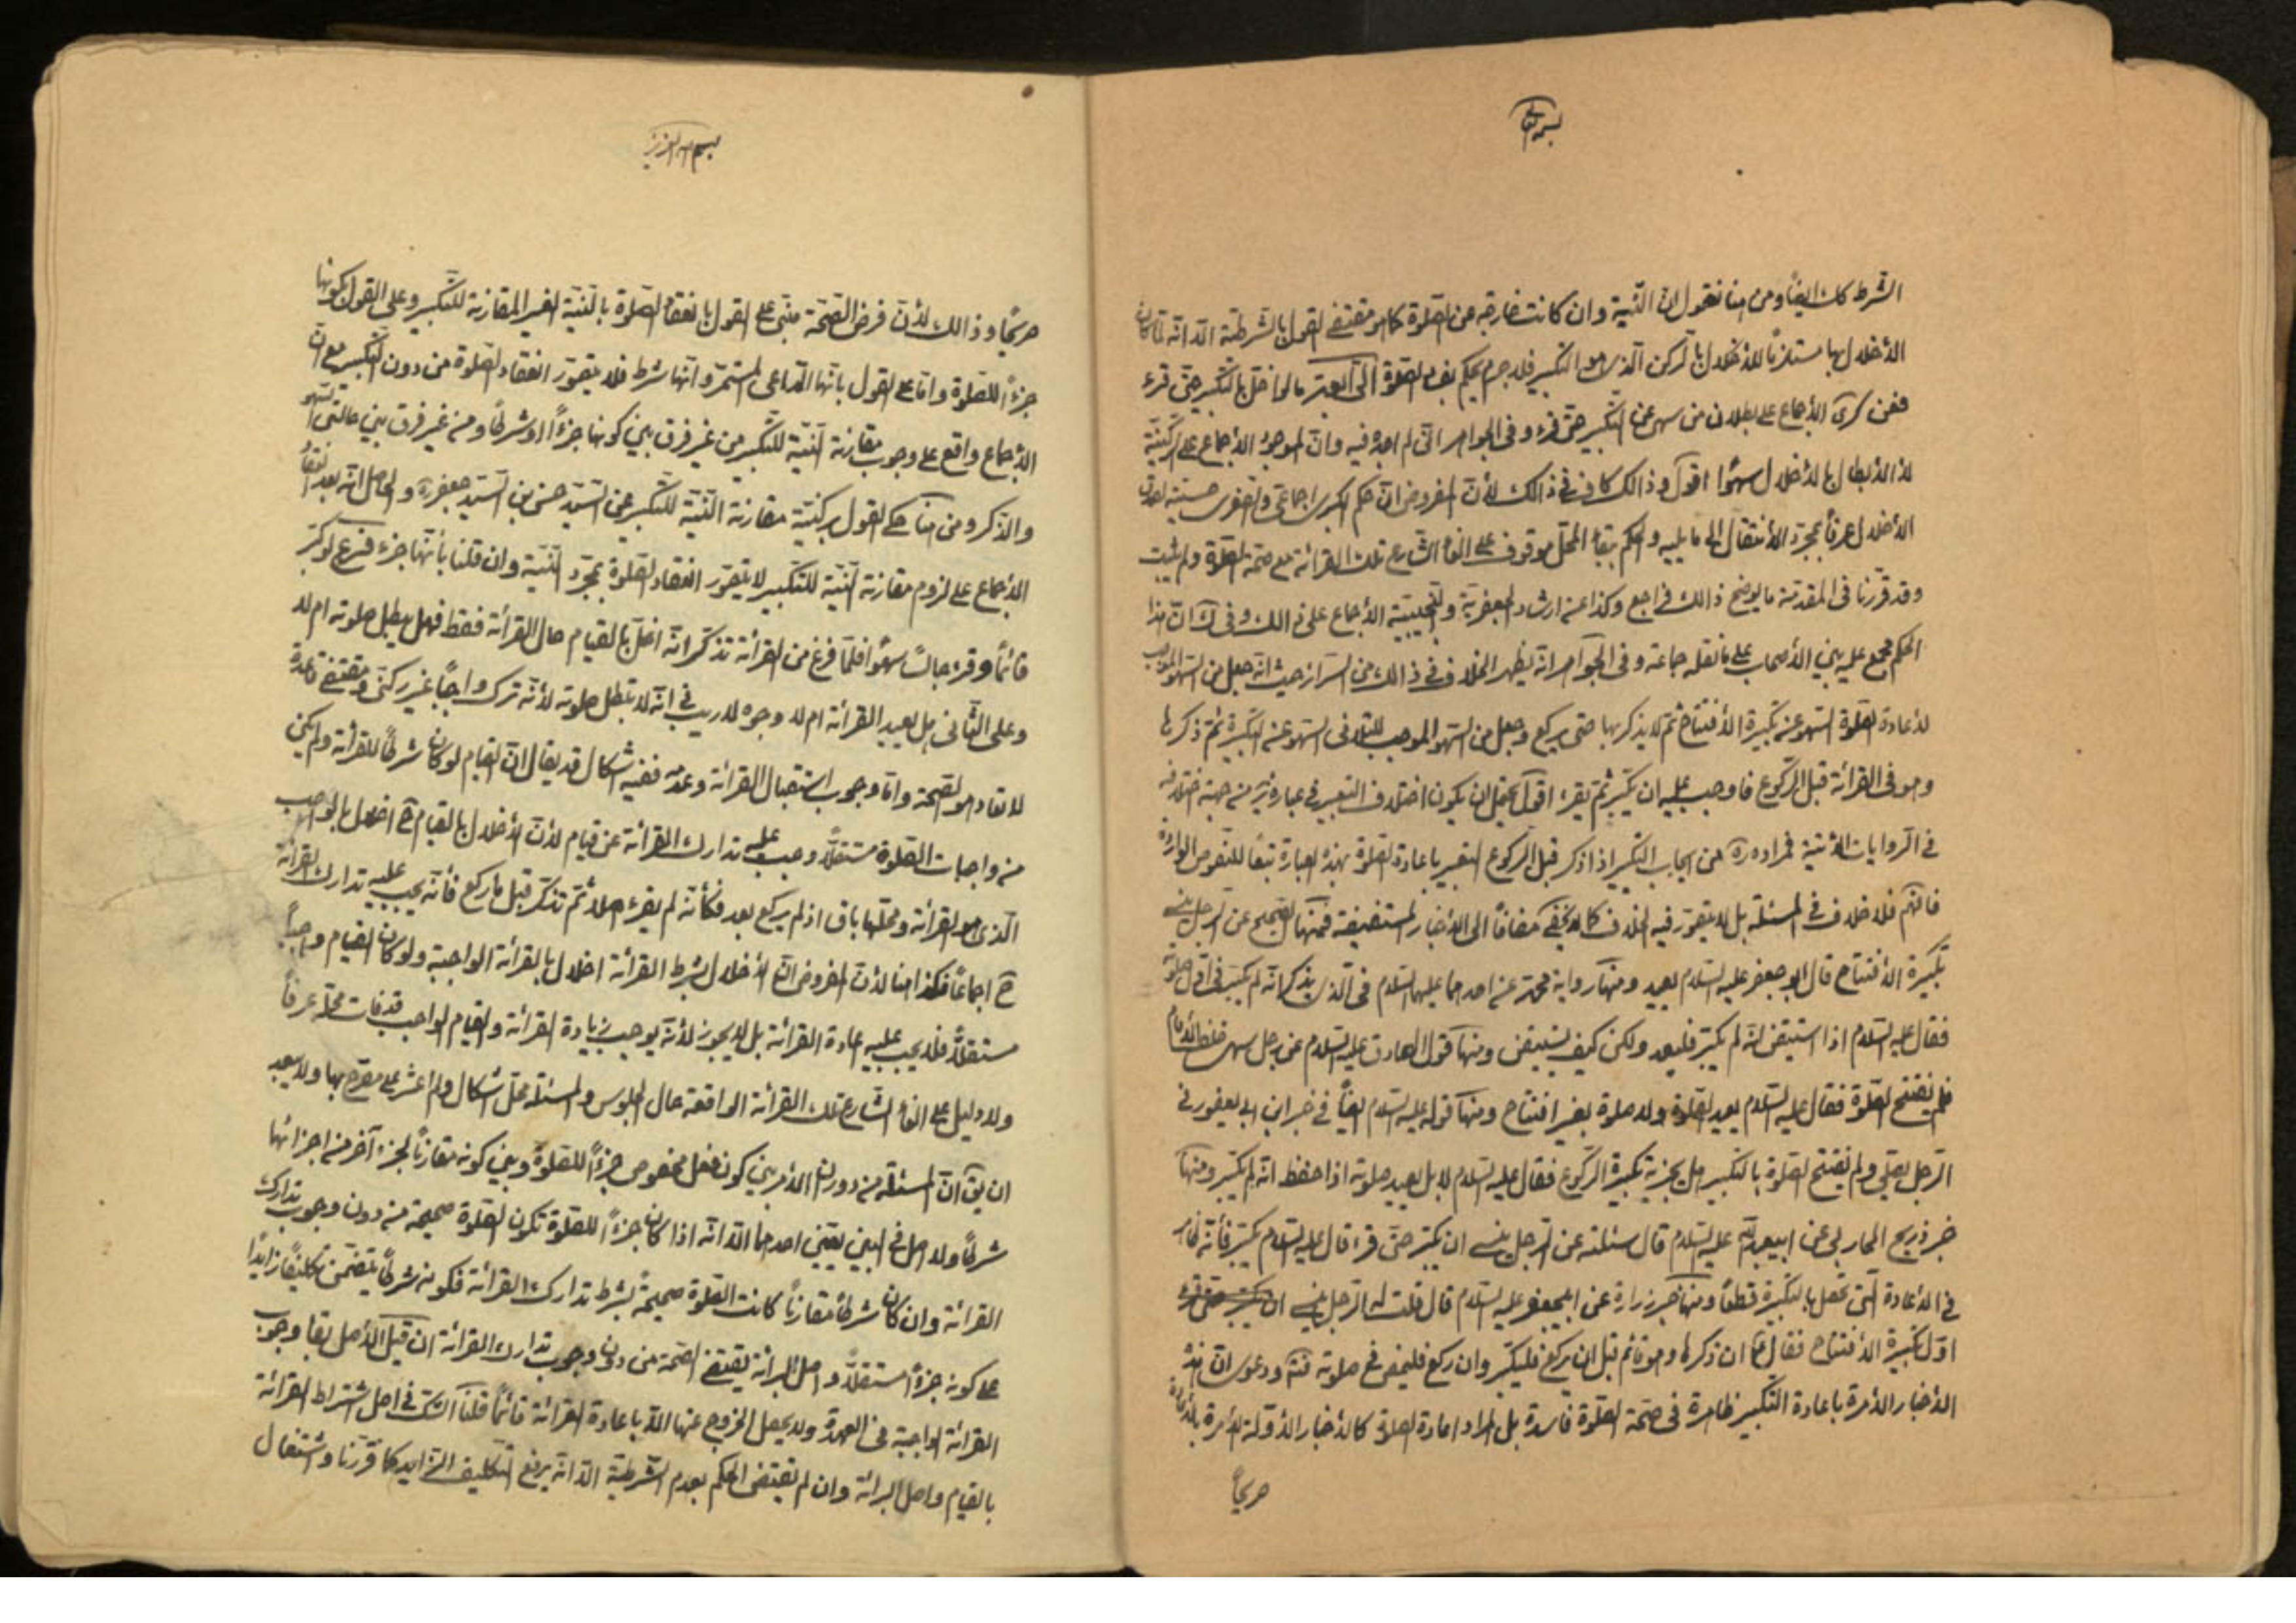 بسمه تعالى
الشرط كك ايضاً ومن هنا نقول ان النّية وان كانت خارجة عن الصّلوة كما هو مقتضى القول بالشّرطيّة الّا انّه لمّا كان
الأخلال بها مستلزماً للأخلال بالرّكن الّذى هو التكبير فلا جرم يحكم بفساد الصّلوة امّا الكبرى مالو اخلّ بالتّكبير حتّى قرء
فعن كرى الأجماع على بطلان من سهى عن التّكبير حتّى قرء وفى الجواهر انّى لم اجد فيه وانّ الموجود الأجماع على الرّكنيّة
لا الأبطال بالأخلال سهواً اقول وذالك كاف فى ذالك لأنّ المفروض انّ حكم الكبرى اجماعى والصغرى حسيّة لصدق
الأخلال عرفاً بمجرّد الأنتقال الى ما يليه والحكم ببقاء المحلّ موقوف على الغاء الشّارع تلك القرائة مع صحّة الصّلوة ولم يثبت
وقد قرّرنا فى المقدّمة ما يوضح ذالك فراجع وكذا عن ارشاد الجعفريّة والنّجيبيّة الأجماع على ذالك وفى ك انّ هذا
الحكم مجمع عليه بين الأصحاب على ما نقله جماعة وفى الجواهر انّه يظهر الخلاف فى ذالك من السّرائر حيث انّه جعل من السّهو الموجب
لأعادة الصّلوة السّهو عن تكبيرة الأفتتاح ثمّ لا يذكرها حتى يركع وجعل من السّهو الموجب للتلافى السّهو عن التّكبيرة ثمّ ذكرها
وهو فى القرائة قبل الرّكوع فاوجب عليه ان يكبّر ثمّ يقرء اقول يحتمل ان يكون اختلاف التعبير فى عبارته من جهة اختلافه
فى الرّوايات الأتية فمراده ره من ايجاب التّكبير اذا ذكر قبل الرّكوع التعبير باعادة الصّلوة بهذه العبارة تبعاً للنّصوص الواردة
فافهم فلا خلاف فى المسئلة بل لا يتصوّر فيه الخلاف كما لا يخفى مضافاً الى الأخبار المستفيضة فمنها الصّحيح عن الرّجل ينسى
تكبيرة الأفتتاح قال ابو جعفر عليه السّلام يعيد ومنها رواية محمّد عن احدهما عليهما السّلام فى الّذى يذكر انّه لم يكبّر فى اوّل صلوته
فقال عليه السّلام اذا استيقن انّه لم يكبّر فليعد ولكن كيف يستيقن ومنها قول الصّادق عليه السّلام عن رجل سهى خلف الأمام
فلم يفتتح الصّلوة فقال عليه السّلام يعيد الصّلوة ولا صلوة بغير افتتاح ومنها قوله عليه السّلام ايضاً فى خبر ابن ابى يعفور فى
الرّجل يصلّى ولم يفتتح الصّلوة بالتّكبير هل يجزيه تكبيرة الرّكوع فقال عليه السّلام لا بل يعيد صلوته اذا حفظ انّه لم يكبّر ومنها
خبر ذريح المحاربى عن ابيعبد اللّه عليه السّلام قال سئلته عن الرّجل ينسى ان يكبّر حتّى قرء قال عليه السّلام يكبّر فأنّه ظاهر
فى الأعادة الّتى تحصل بالتكبيرة قطعاً ومنها خبر زرارة عن ابيجعفر عليه السّلام قال قلت له الرّجل ينسى
اوّل تكبيرة الأفتتاح فقال ع ان ذكرها وهو قائم قبل ان يركع فليكبّر وان ركع فليمض فى صلوته فت ودعوى انّ هذه
الأخبار الأمرة باعادة التكبير ظاهرة فى صحّة الصّلوة فاسدة بل المراد اعادة الصّلوة كالأخبار الأوّلة الأمرة بالأعادة
صريحاً
بسم اللّه العزيز
صريحاً وذالك لأنّ فرض الصّحّة مبنىّ على القول بانعقاد الصّلوة بالنّيّة الغير المقارنة للتّكبير وعلى القول بكونها
جزءاً للصّلوة وامّا على القول بانّها الدّاعى المستمرّ وانّها شرط فلا يتصوّر انعقاد الصّلوة من دون التّكبير مع انّ
الأجماع واقع على وجوب مقارنة النّيّة للتّكبير من غير فرق بين كونها جزءاً او شرطاً ومن غير فرق بين حالتى السّهو
والذّكر ومن هنا حكى القول بركنيّة مقارنة النّيّة للتّكبير عن السّيّد حسن بن السّيّد جعفر ره والحاصل انّه بعد انعقاد
الأجماع على لزوم مقارنة النّيّة للتّكبير لا يتصوّر انعقاد الصّلوة بمجرّد النّيّة وان قلنا بأنّها جزء فرع لو كبّر
قائماً وقرء جالساً سهواً فلمّا فرغ من القرائة تذكّر انّه اخلّ بالقيام حال القرائة فقط فهل يبطل صلوته ام لا
وعلى الثّانى هل يعيد القرائة ام لا وجوه لا ريب فى انّه لا يبطل صلوته لأنّه ترك واجباً غير ركنى ومقتضى قاعدة
لا تعاد هو الصّحّة وامّا وجوب استقبال القرائة وعدمه ففيه اشكال قد يقال انّ القيام لو كان شرطاً للقرائة ولم يكن
من واجبات الصّلوة مستقلّاً وجب عليه تدارك القرائة عن قيام لأنّ الأخلال بالقيام ح اخلال بالواجب
الّذى هو القرائة ومحلّها باق اذ لم يركع بعد فكأنّه لم يقرء اصلاً ثمّ تذكّر قبل ما ركع فأنّه يجب عليه تدارك القرائة
ح اجماعاً فكذا هنا لأنّ المفروض انّ الأخلال بشرط القرائة اخلال بالقرائة الواجبة ولو كان القيام واجباً
مستقلّاً فلا يجب عليه اعادة القرائة بل لا يجوز لأنّه يوجب زيادة القرائة والقيام الواجب قد فات محلّه عرفاً
ولا دليل على الغاء الشّارع تلك القرائة الواقعة حال الجلوس والمسئلة محلّ اشكال ولم اعثر على مصرّح بها ولا يبعد
ان يق انّ المسئلة من دوران الأمر بين كون فعل مخصوص جزءاً للصّلوة وبين كونه مقارناً لجزء آخر من اجزائها
شرطاً ولا اصل فى البين يعيّن احدهما الّا انّه اذا كان جزءاً للصّلوة تكون الصّلوة صحيحة من دون وجوب تدارك
القرائة وان كان شرطاً مقارناً كانت الصّلوة صحيحة بشرط تدارك القرائة فكونه شرطاً يتضمّن تكليفاً زايداً
على كونه جزءاً مستقلّاً واصل البرائة يقتضى الصّحّة من دون وجوب تدارك القرائة ان قيل الأصل بقاء وجوب
القرائة الواجبة فى العهدة ولا يحصل الخروج عنها الّا باعادة القرائة قائماً قلنا الشّك فى اصل اشتراط القرائة
بالقيام واصل البرائة وان لم يقتضى الحكم بعدم الشّرطيّة الّا انّه يرفع التّكليف الزايد كما قرّرنا واشتغال